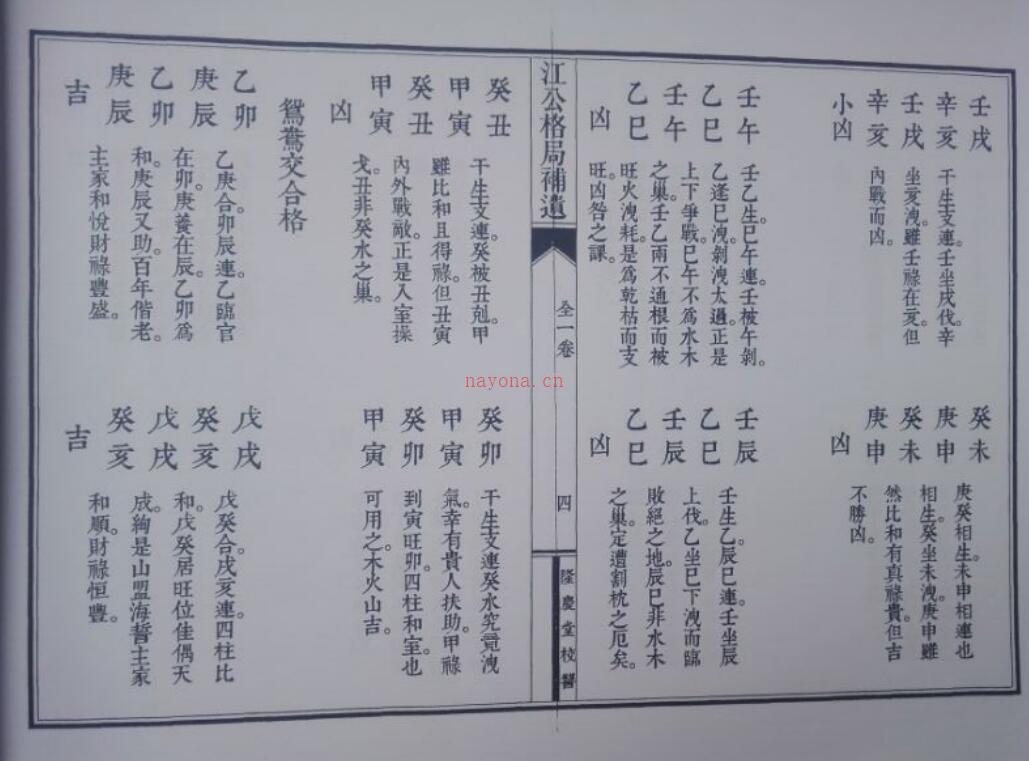 壬戌
辛亥
壬戌
辛亥
小凶
干生支連。壬坐戌伐。辛
坐亥洩。雖壬祿在亥。但
內戰而凶。
壬午
乙巳
壬午
乙巳
凶
壬乙生。巳午連。壬被午剝。
乙逢巳洩。剝洩太過。正是
上下爭戰。巳午不為水木
之巢。壬乙兩不通根而被
旺火洩耗。是為乾枯而支
旺。凶咎之課。
癸未
庚申
癸未
庚申
凶
庚癸相生。未申相連也
相生。癸坐未洩。庚申雖
然比和有真祿貴。但吉
不勝凶。
壬辰
乙巳
壬辰
乙巳
凶
壬生乙。辰巳連。壬坐辰
上伐。乙坐巳下洩而臨
敗絕之地。辰巳非水木
之巢。定遭割枕之厄矣。
江公格局補遺
全一卷
四
隆慶堂校
癸丑
甲寅
癸丑
甲寅
凶
干生支連。癸被丑剋。甲
雖比和且得祿。但丑寅
內外戰敵。正是入室操
戈。丑非癸水之巢。
鴛鴦交合格
乙卯
庚辰
乙卯
庚辰
吉
乙庚合。卯辰連。乙臨官
在卯。庚養在辰。乙卯為
和。庚辰又助。百年偕老。
主家和悅財祿豐盛。
癸卯
甲寅
癸卯
甲寅
干生支連癸水究竟洩
氣。幸有貴人扶助。甲祿
到寅旺卯。四柱和室。也
可用之。木火山吉。
戊戌
癸亥
戊戌
癸亥
吉
戊癸合。戌亥連。四柱比
和。戊癸居旺位佳偶天
成。絢是山盟海誓主家
和順。財祿恒豐。
nayona.cn